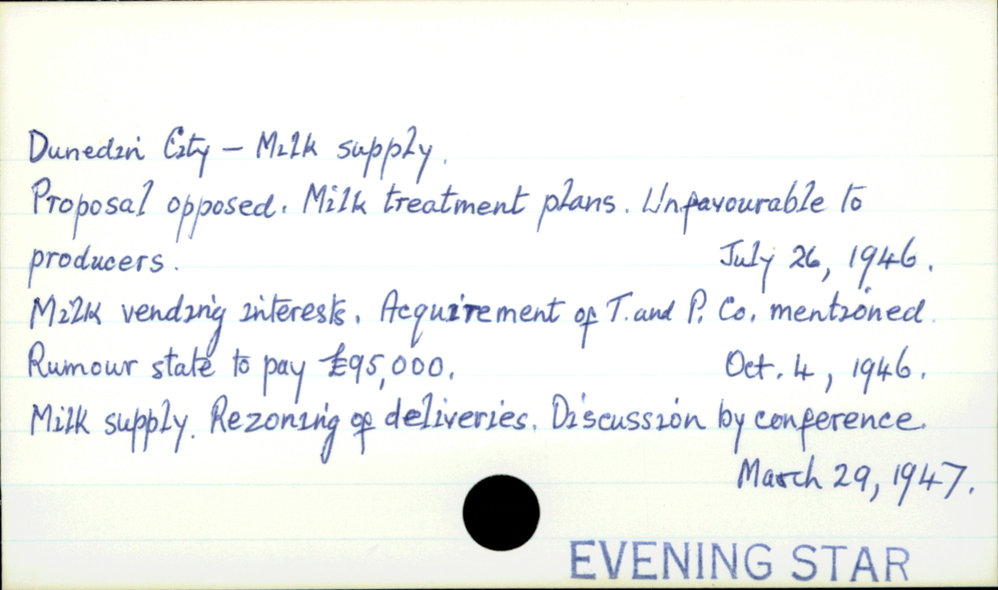 Dunedin City – Milk supply.
Proposal opposed. Milk treatment plans. Unfavourable to
producers. July 26, 1946.
Milk vending interests. Acquirement of T. and P. Co. mentioned.
Rumour state to pay £95,000. Oct. 4, 1946.
Milk supply. Rezoning of deliveries. Discussion by conference.
March 29, 1947.
EVENING STAR